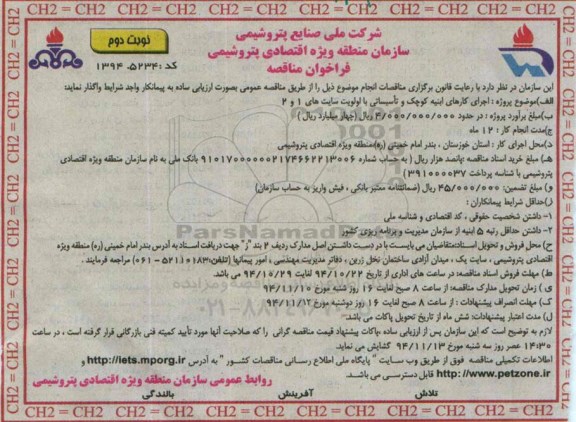 CH2 = CH2 CH2 = CH2 CH2 = CH2 CH2 = CH2 CH2 = CH2 CH2 = CH2 CH2 = CH2
شرکت ملی صنایع پتروشیمی
سازمان منطقه ویژه اقتصادی پتروشیمی
فراخوان مناقصه
نوبت دوم
کد: ۱۳۹۴۰۵۲۳۴
این سازمان در نظر دارد با رعایت قانون برگزاری مناقصات انجام موضوع ذیل را از طریق مناقصه عمومی بصورت ارزیابی ساده به پیمانکار واجد شرایط واگذار نماید:
الف)موضوع پروژه : اجرای کارهای ابنیه کوچک و تأسیساتی با اولویت سایت های ۱ و ۲
ب)مبلغ برآورد پروژه : در حدود ۴/۰۰۰/۰۰۰/۰۰۰ ریال (چهار میلیارد ریال )
ج)مدت انجام کار : ۱۲ ماه
د)محل اجرای کار : استان خوزستان ، بندر امام خمینی (ره)،منطقه ویژه اقتصادی پتروشیمی
هـ) مبلغ خرید اسناد مناقصه پانصد هزار ریال ( به حساب شماره ۲۱۷۴۶۶۲۲۱۳۰۰۶ بانک ملی به نام سازمان منطقه ویژه اقتصادی
پتروشیمی با شناسه پرداخت
و) مبلغ تضمین: ۴۵/۰۰۰/۰۰۰ ریال (ضمانتنامه معتبر بانکی ، فیش واریز به حساب سازمان)
ز)حداقل شرایط پیمانکاران :
۱- داشتن شخصیت حقوقی ، کد اقتصادی و شناسه ملی
۲- داشتن حداقل رتبه ۵ ابنیه از سازمان مدیریت و برنامه ریزی کشور
ح) محل فروش و تحویل اسناد:متقاضیان می بایست با در دست داشتن اصل مدارک ردیف ۲ بند "ز" جهت دریافت اسناد به آدرس بندر امام خمینی (ره) منطقه ویژه
اقتصادی پتروشیمی ، سایت یک ، میدان آزادی ساختمان نخل زرین ، دفاتر مدیریت مهندسی ، امور پیمانها (تلفن:۵۲۱۱۰۱۸۳-۰۶۱) مراجعه فرمایند .
ط) مهلت فروش اسناد مناقصه: در ساعت های اداری از تاریخ ۹۴/۱۰/۲۲ لغایت ۹۴/۱۰/۲۹ می باشد.
ی ) زمان تحویل مدارک مناقصه: از ساعت ۸ صبح لغایت ۱۶ روز شنبه مورخ ۹۴/۱۱/۱۰
ک) مهلت انصراف پیشنهادات : از ساعت ۸ صبح لغایت ۱۶ روز دوشنبه مورخ ۹۴/۱۱/۱۲
ل) مدت اعتبار پیشنهادات: شش ماه از تاریخ تحویل پاکات می باشد.
لازم به توضیح است که این سازمان پس از ارزیابی ساده ،پاکات پیشنهاد قیمت مناقصه گرانی را که صلاحیت آنها مورد تأیید کمیته فنی بازرگانی قرار گرفته است ، در ساعت
۱۴:۳۰ عصر روز سه شنبه مورخ ۹۴/۱۱/۱۳ گشایش می نماید.
اطلاعات تکمیلی مناقصه فوق از طریق وب سایت " پایگاه ملی اطلاع رسانی مناقصات کشور " به آدرس http://iets.mporg.ir و
http://www.petzone.ir قابل دسترسی می باشد.
روابط عمومی سازمان منطقه ویژه اقتصادی پتروشیمی
تلاش آفرینش بالندگی
CH2 = CH2 CH2 = CH2 CH2 = CH2 CH2 = CH2 CH2 = CH2 CH2 = CH2 CH2 = CH2